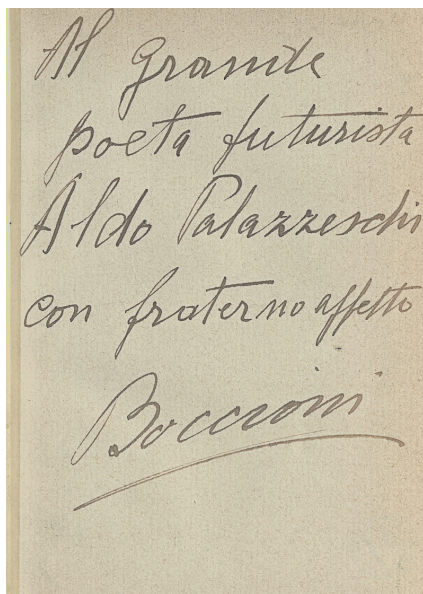 Al grande
poeta futurista
Aldo Palazzeschi
con fraterno affetto
Boccioni